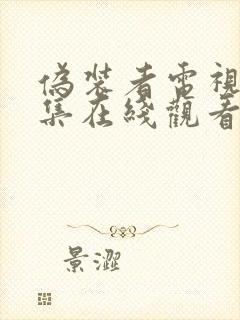 偽裝者電視
集在綫觀看
景澀